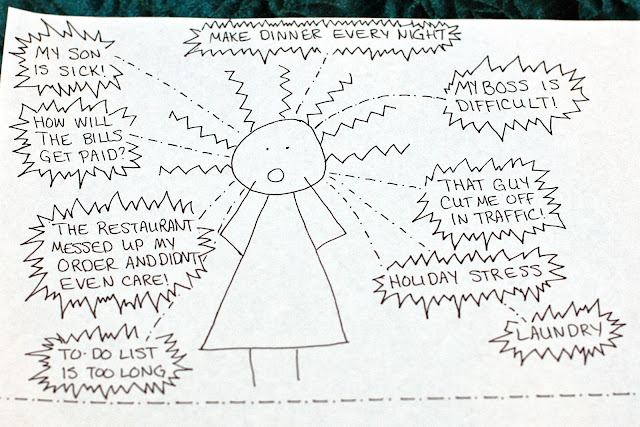 MAKE DINNER EVERY NIGHT
MY SON
IS SICK!
HOW WILL
THE BILLS
GET PAID?
THE RESTAURANT
MESSED UP MY
ORDER AND DIDNT
EVEN CARE!
TO-DO LIST
IS TOO LONG
MY BOSS IS
DIFFICULT!
THAT GUY
CUT ME OFF
IN TRAFFIC!
HOLIDAY STRESS
LAUNDRY